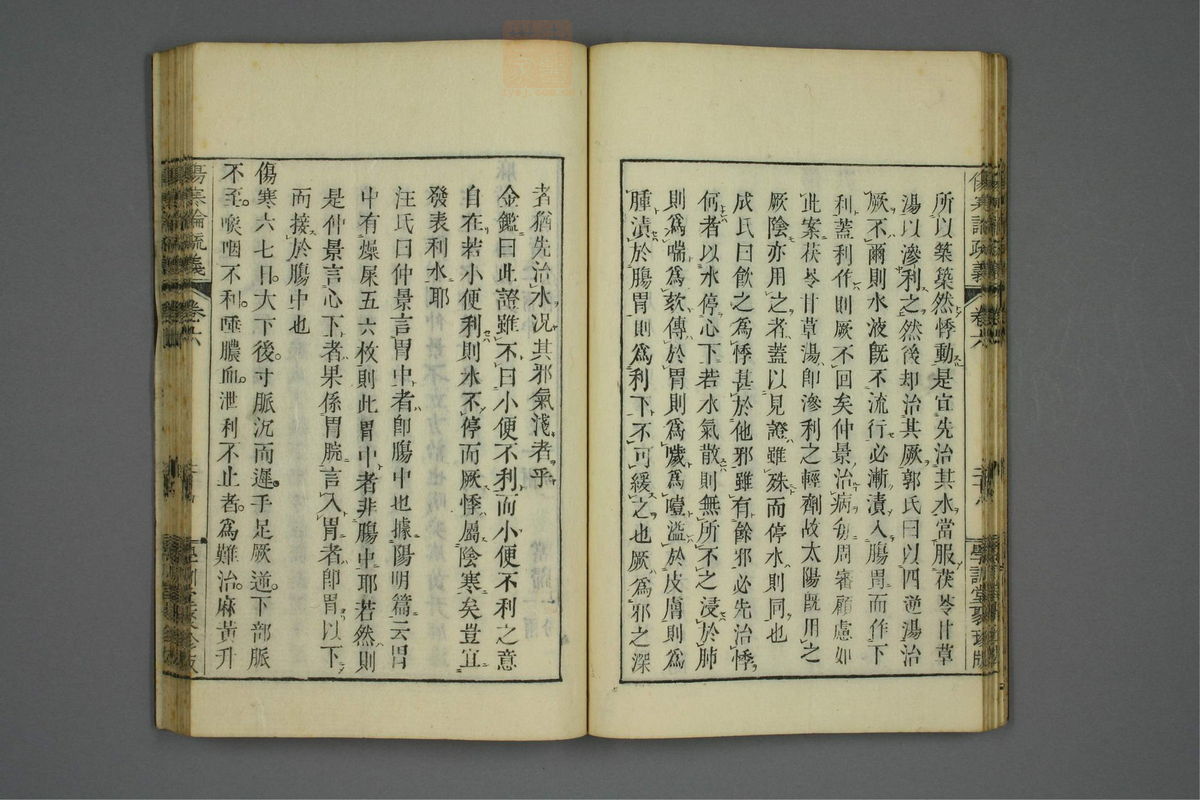 傷寒論疏義 卷六
所以築築然悸動是宜先治其水當服茯苓甘草
湯以滲利之然後却治其厥郭氏曰以四逆湯治
厥不爾則水液既不流行必漸漬入腸胃而作下
利蓋利作則厥不回矣仲景治病每周審顧慮如
此案茯苓甘草湯即滲利之輕劑故太陽既用之
厥陰亦用之者蓋以見證雖殊而停水則同也
成氏曰飲之為悸甚於他邪雖有餘邪必先治悸
何者以水停心下若水氣散則無所不之浸於肺
則為喘為欬傳於胃則為噦為噎溢於皮膚則為
腫漬於腸胃則為利下不可緩之也厥為邪之深
者猶先治水况其邪氣淺者乎
金鑑曰此證雖不曰小便不利而小便不利之意
自在若小便利則水不停而厥悸屬陰寒矣豈宜
發表利水耶
汪氏曰仲景言胃中者即腸中也據陽明篇云胃
中有燥屎五六枚則此胃中者非腸中耶若然則
是仲景言心下者果係胃脘言入胃者即胃以下
而接於腸中也
傷寒六七日大下後寸脈沉而遲手足厥逆下部脈
不至喉咽不利唾膿血泄利不止者為難治麻黃升
傷寒論疏義 卷六